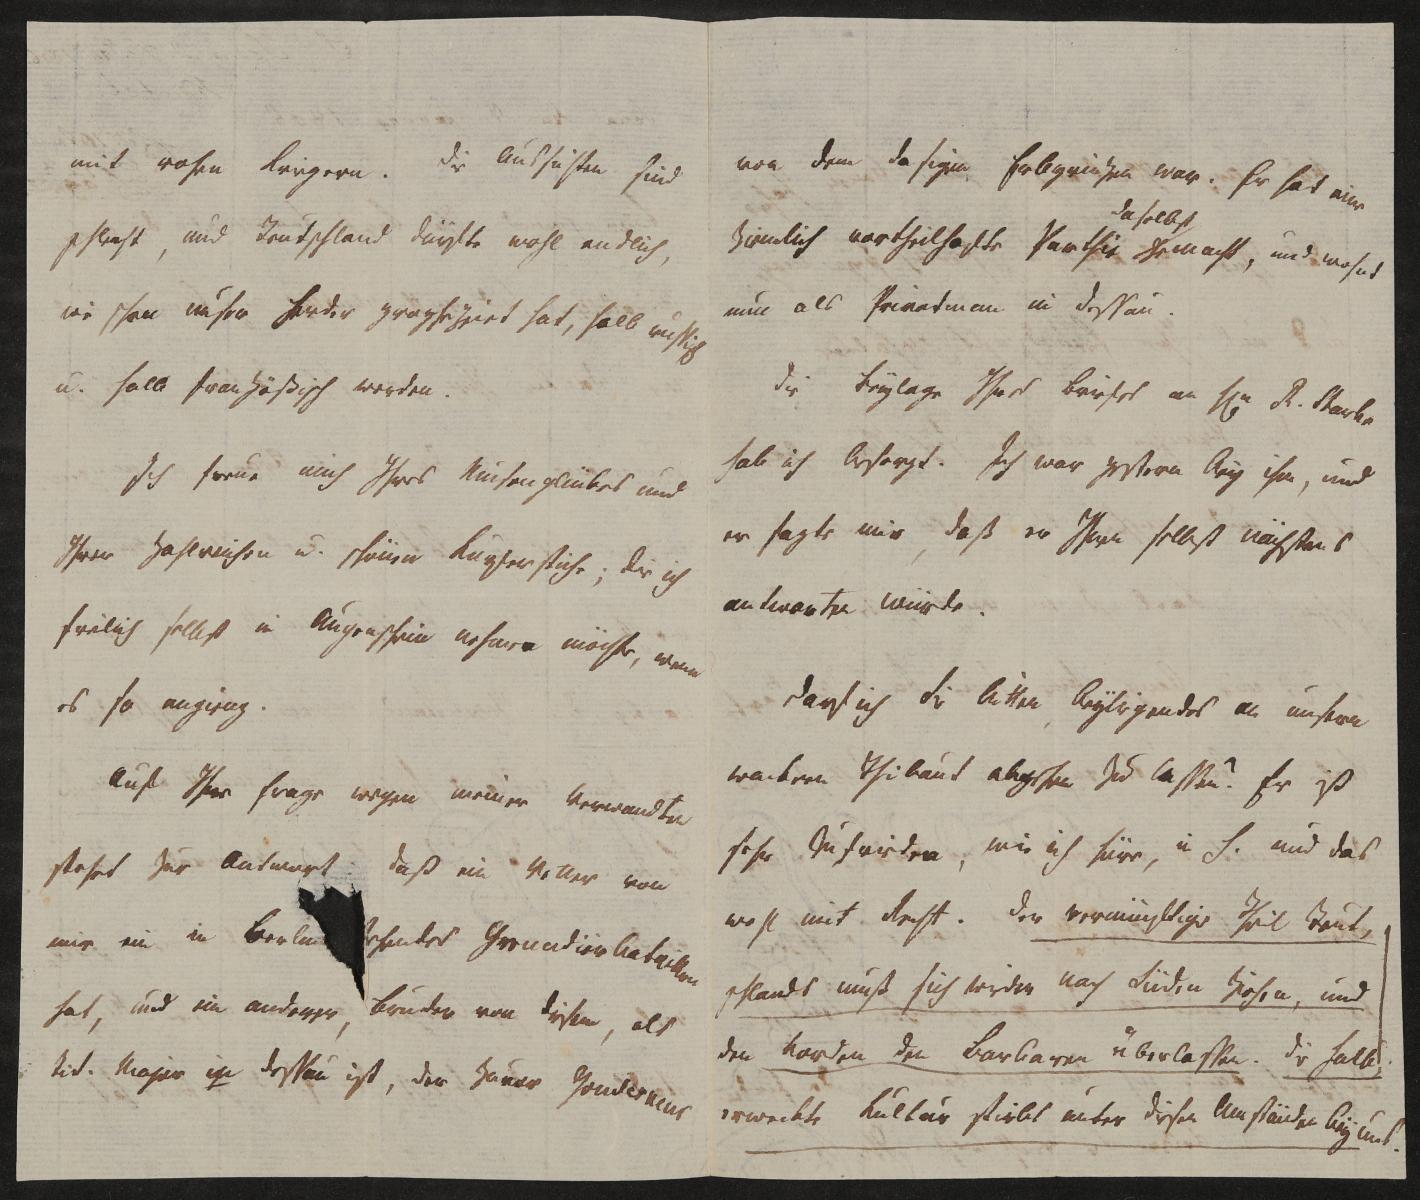 mit rohen Kriegern. Die Aussichten sind
schlecht, und Teutschland dürfte wohl endlich,
wie schon unser Herder prophezeiet hat, halb russisch
u. halb französisch werden.
Ich freue mich Ihres Musenglückes und
Ihrer zahlreichen u. schönen Kupferstiche; die ich
freilich selbst in Augenschein nehmen möchte, wenn
es so anginge.
Auf Ihre Frage wegen meiner Verwandten
stehet zur Antwort daß ein Vetter von
mir ein in Berlin stehendes Grenadierbataillon
hat, und ein anderer, Bruder von diesem, als
tit. Major in Dessau ist, der zuvor Gouverneur
von dem dasigen Erbprinzen war. Er hat eine
daselbst
ziemlich vortheilhafte Parthie gemacht, und wohnt
nun als Privatman in Dessau.
Die Beylage Ihres Briefes an Hrn R. Starke
hab ich besorgt. Ich war gestern bey ihm, und
er sagte mir, daß er Ihnen selbst nächstens
antworten würde.
Darf ich Sie bitten beyliegendes an unsern
wackern Thibaut abgehen zu lassen? Er ist
sehr zufrieden, wie ich höre, in H. und das
wohl mit Recht. Der vernünftige Theil Teut-
schlands muß sich wieder nach Süden ziehen, und
den Norden den Barbaren überlassen. Die halb
erweckte Kultur stirbt unter diesen Umständen bey uns.